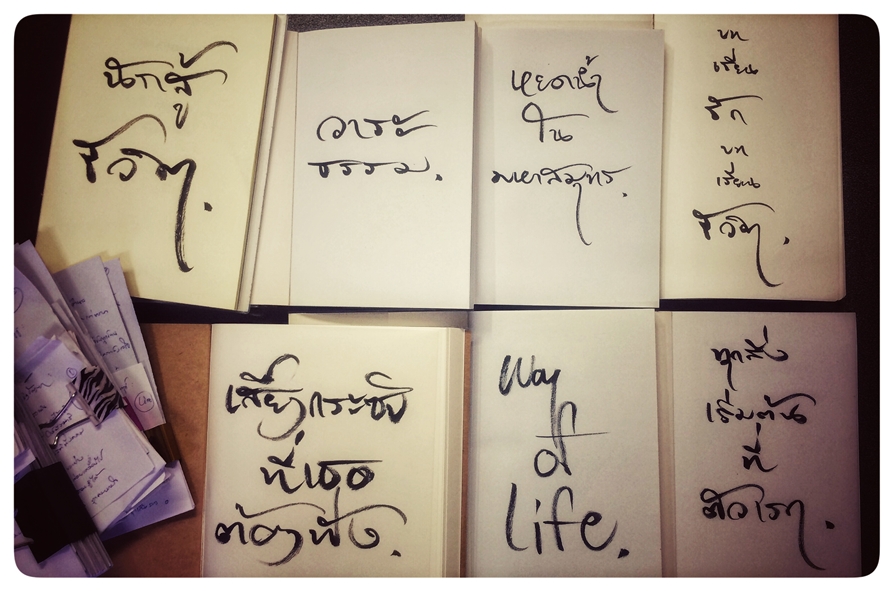 นักสู้
ชีวิต.
วาระ
ธรรม.
หยดน้ำ
ใน
มหาสมุทร.
บท
เรียน
รัก
บท
เรียน
ชีวิต.
เสียงกระซิบ
ที่เธอ
ต้องฟัง.
Way
of
life.
ทุกสิ่ง
เริ่มต้น
ที่
ตัวเรา.